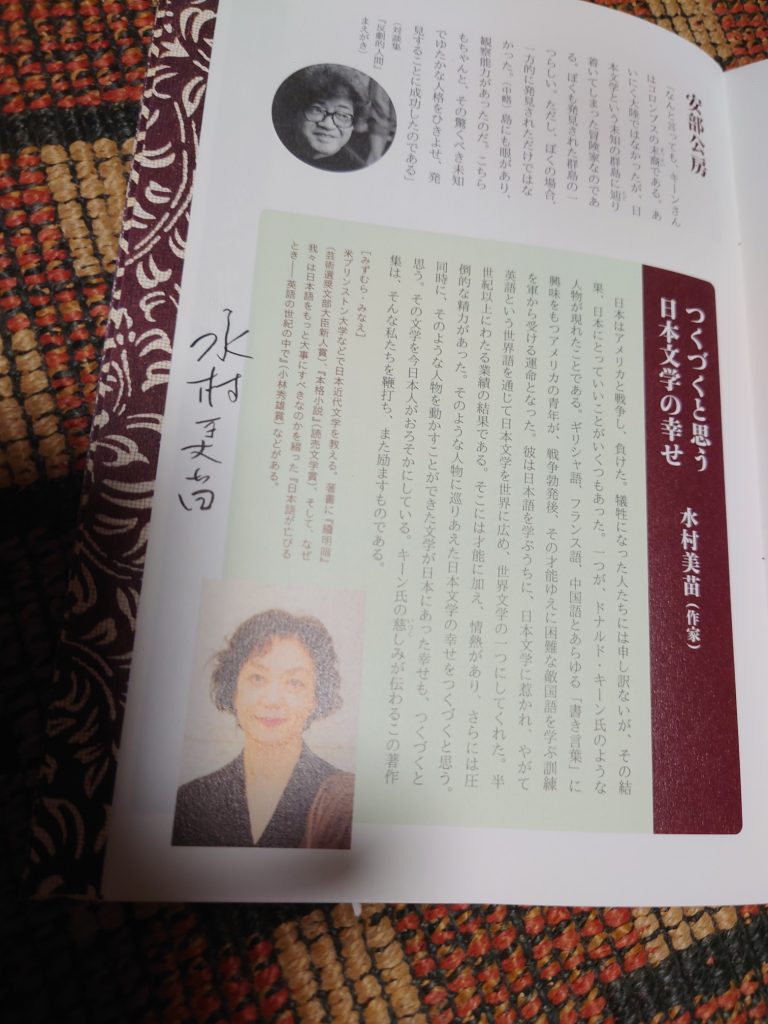 安部公房
「なんと言っても、キーンさん
はコロンブスの末裔である。あ
いにく大陸ではなかったが、日
本文学という未知の群島に辿り
着いてしまった冒険家なのであ
る。ぼくも発見された群島の一
つらしい。ただし、ぼくの場合、
一方的に発見されただけではな
かった。（中略）島にも眼があり、
観察能力があったのだ。こちら
もちゃんと、その驚くべき未知
でゆたかな人格をひきよせ、発
見することに成功したのである」
〔対談集
『反劇的人間』
まえがき〕
つくづくと思う
日本文学の幸せ
水村美苗（作家）
日本はアメリカと戦争し、負けた。犠牲になった人たちには申し訳ないが、その結
果、日本にとっていいことがいくつもあった。一つが、ドナルド・キーン氏のような
人物が現れたことである。ギリシャ語、フランス語、中国語とあらゆる「書き言葉」に
興味をもつアメリカの青年が、戦争勃発後、その才能ゆえに困難な敵国語を学ぶ訓練
を軍から受ける運命となった。彼は日本語を学ぶうちに、日本文学に惹かれ、やがて
英語という世界語を通じて日本文学を世界に広め、世界文学の一つにしてくれた。半
世紀以上にわたる業績の結果である。そこには才能に加え、情熱があり、さらには圧
倒的な精力があった。そのような人物に巡りあえた日本文学の幸せをつくづくと思う。
同時に、そのような人物を動かすことができた文学が日本にあった幸せも、つくづくと
思う。その文学を今日本人がおろそかにしている。キーン氏の慈しみが伝わるこの著作
集は、そんな私たちを鞭打ち、また励ますものである。
［みずむら・みなえ］
米プリンストン大学などで日本近代文学を教える。著書に『續明暗』
（芸術選奨文部大臣新人賞）、『本格小説』（読売文学賞）、そして、なぜ
我々は日本語をもっと大事にすべきなのかを綴った『日本語が亡びる
とき――英語の世紀の中で』（小林秀雄賞）などがある。
水村美苗